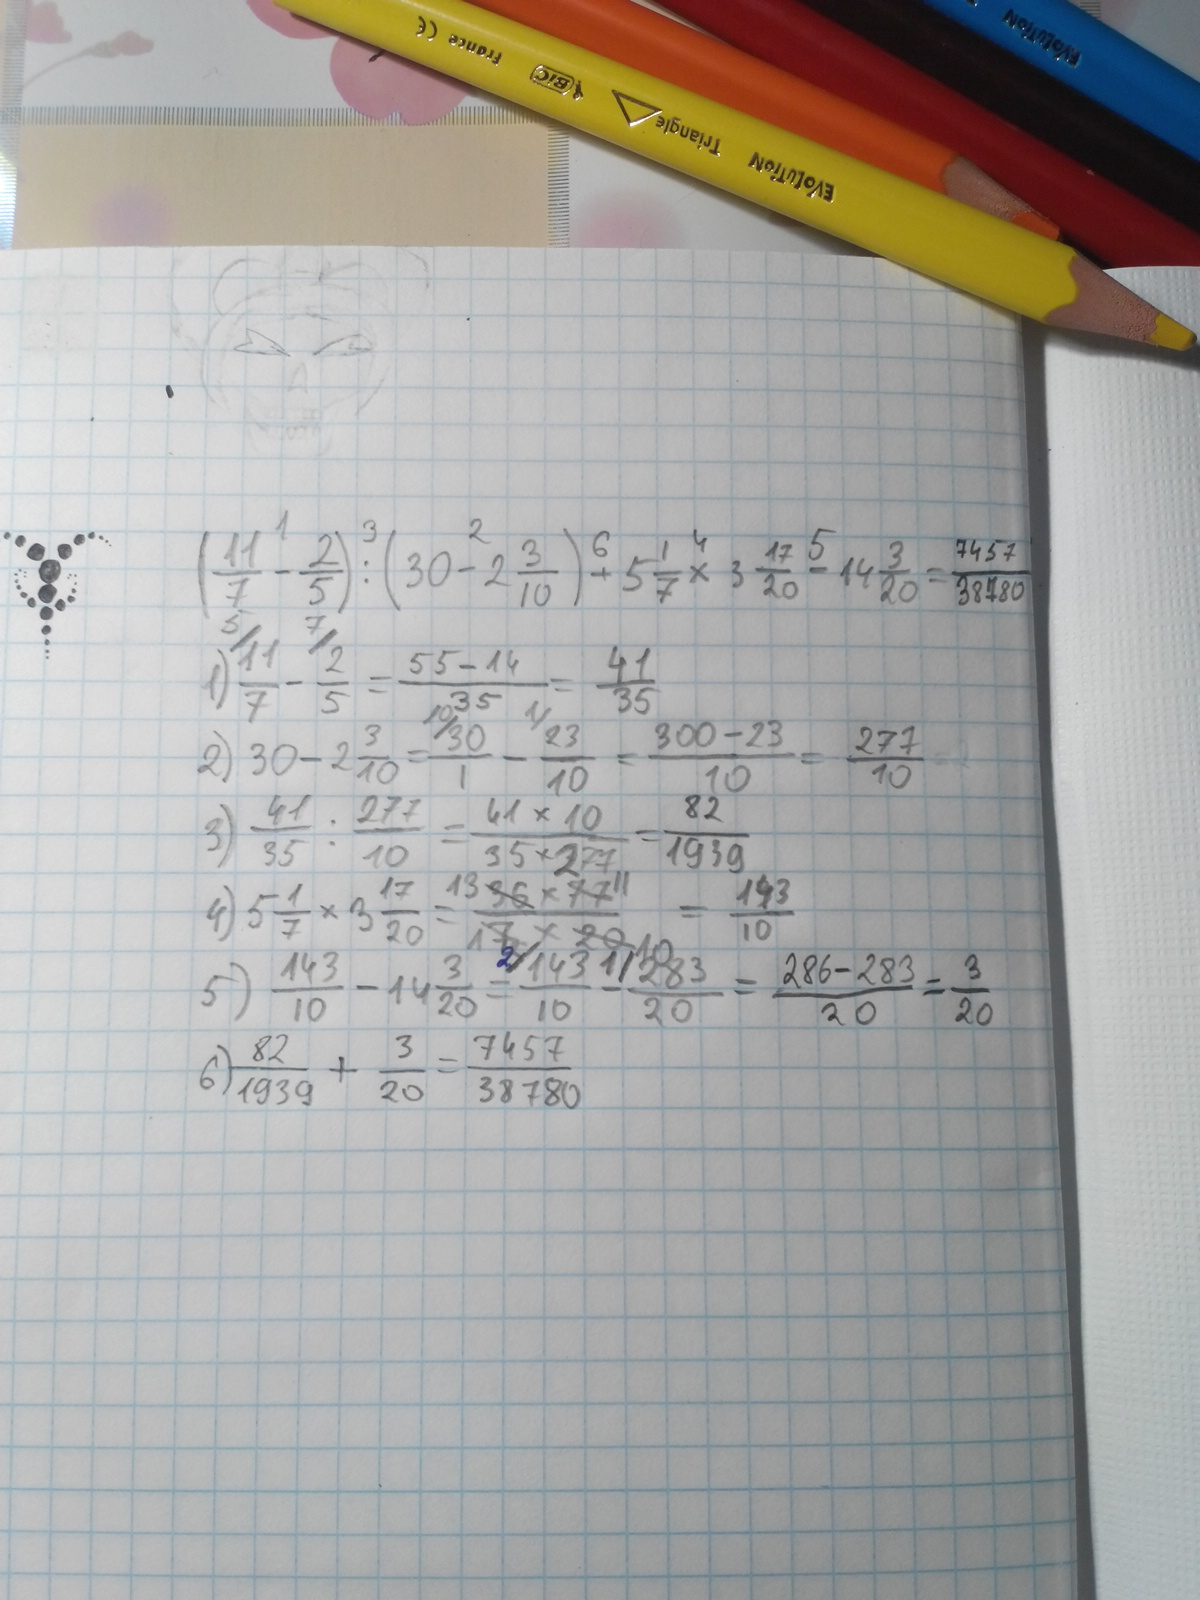 EVOLUTION
France CE
BIC
Triangle
EVOLUTION
(11/7 - 2/5) : (30 - 2 3/10) + 5 1/7 × 3 17/20 - 14 3/20 = 7457/38780
1) 11/7 - 2/5 = 55-14/35 = 41/35
2) 30 - 2 3/10 = 30/1 - 23/10 = 300-23/10 = 277/10
3) 41/35 : 277/10 = 41×10/35×277 = 82/1939
4) 5 1/7 × 3 17/20 = 36×77/7×20 = 143/10
5) 143/10 - 14 3/20 = 143/10 - 283/20 = 286-283/20 = 3/20
6) 82/1939 + 3/20 = 7457/38780